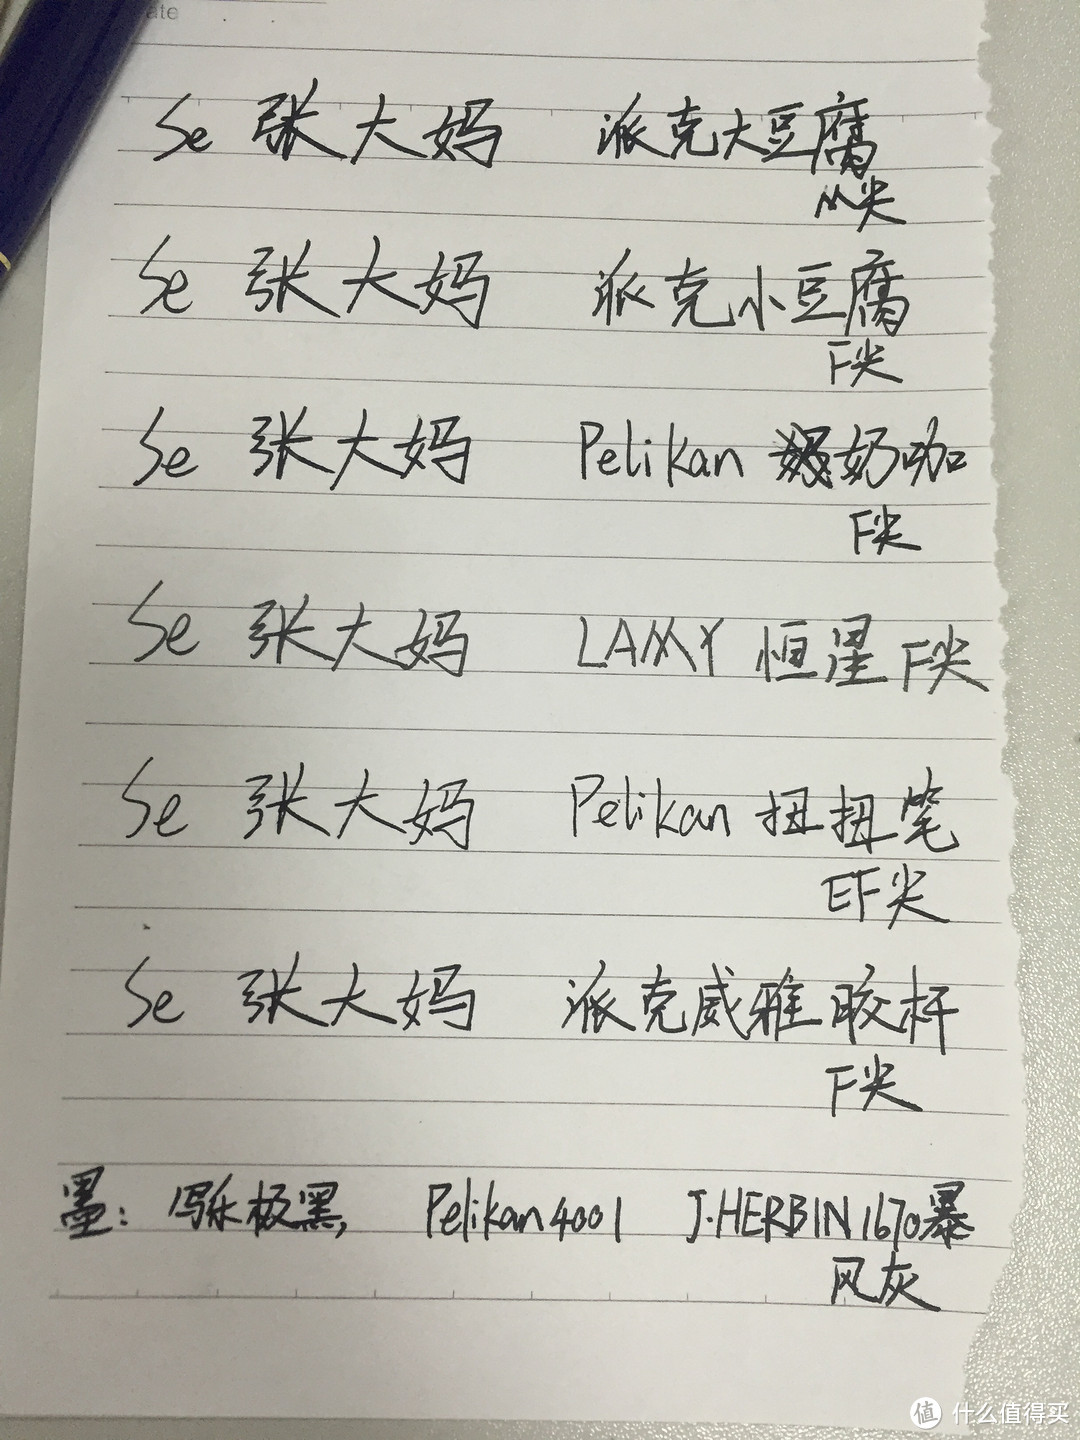 ate
Se 张大妈 派克大豆腐
M尖
Se 张大妈 派克小豆腐
F尖
Se 张大妈 Pelikan 奶咖
F尖
Se 张大妈 LAMY 恒星 F尖
Se 张大妈 Pelikan 扭扭笔
EF尖
Se 张大妈 派克威雅胶杆
F尖
墨: 写乐极黑, Pelikan4001 J.HERBIN1670暴
风灰
值 什么值得买